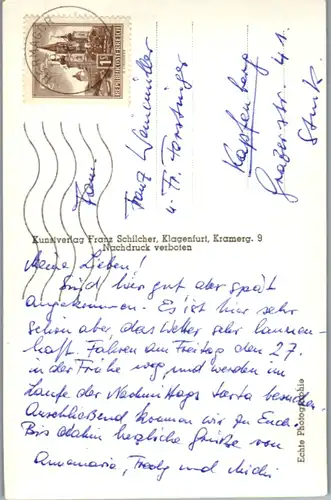 REPUBLIK ÖSTERREICH
Fam.
Franz Weinmüller
u. Fr. Forstinger
Kapfenberg
Grazerstr. 41
Stmk
Kunstverlag Franz Schilcher, Klagenfurt, Kramerg. 9
Nachdruck verboten
Echte Photographie
Meine Lieben!
Sind hier gut aber spät
angekommen. Es ist hier sehr
schön aber das Wetter sehr launen-
haft. Fahren am Freitag den 27.
in der Frühe weg und werden im
Laufe des Nachmittags besuchen.
Anschließend kommen wir zu Euch.
Bis dahin herzliche Grüße von
Annemarie, und